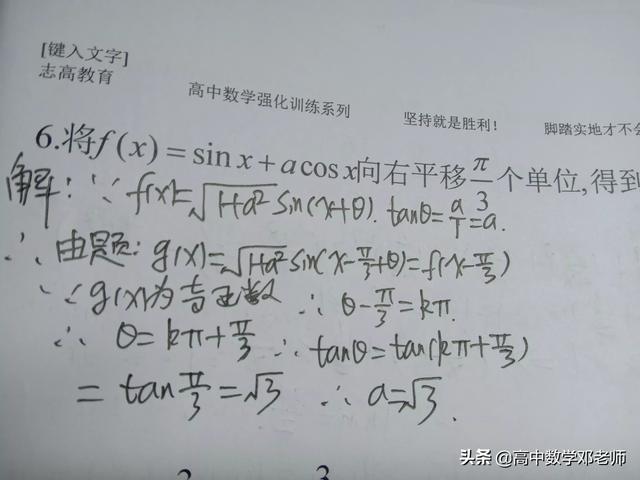 [键入文字]
志高教育
高中数学强化训练系列
坚持就是胜利!
脚踏实地才不会
6.将f(x)=sin x+a cos x向右平移π/3个单位,得到
解:∵ f(x)=√(1+a²) sin(x+θ). tanθ=a/1=a.
∴ 由题: g(x)=√(1+a²) sin(x-π/3+θ)=f(x-π/3)
∵ g(x)为奇函数 ∴ θ-π/3=kπ.
∴ θ=kπ+π/3 ∴ tanθ=tan(kπ+π/3)
= tan π/3=√3 ∴ a=√3.
头条 @高中数学邓老师